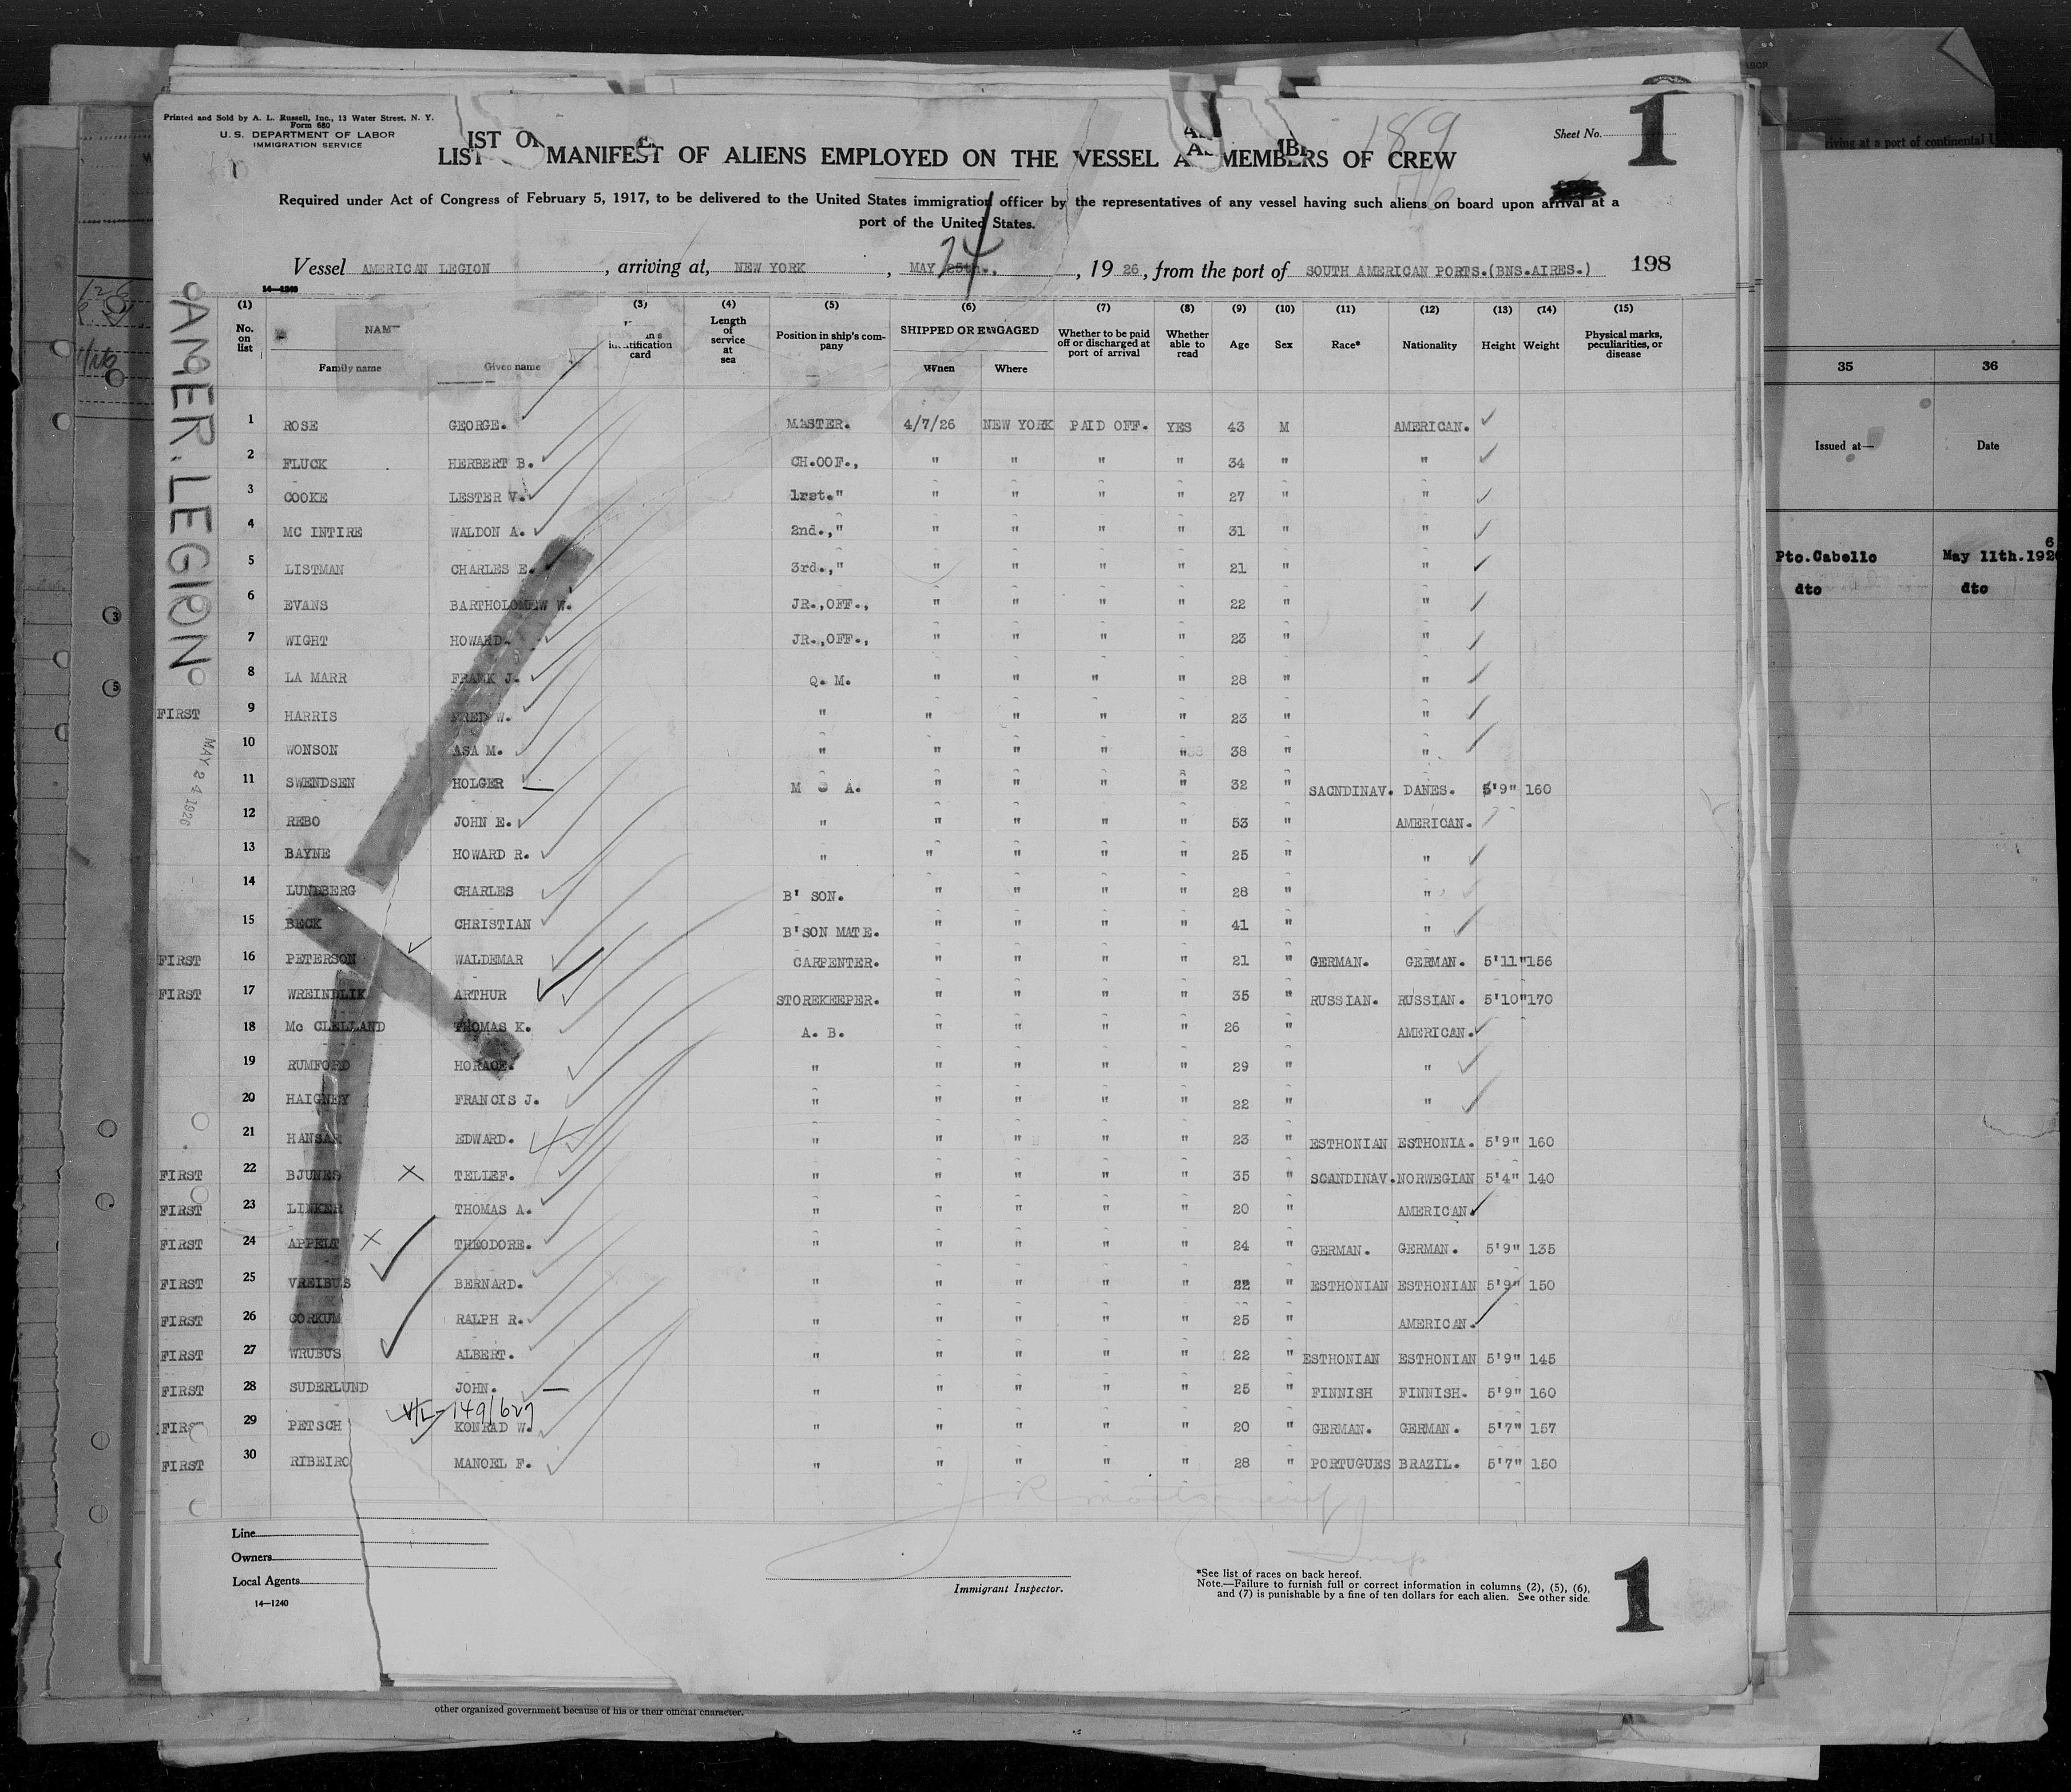 Printed and Sold by A. L. Russell, Inc., 13 Water Street, N. Y.
Form 680
U. S. DEPARTMENT OF LABOR
IMMIGRATION SERVICE
189
Sheet No.
1
LIST MANIFEST OF ALIENS EMPLOYED ON THE VESSEL AS MEMBERS OF CREW
Required under Act of Congress of February 5, 1917, to be delivered to the United States immigration officer by the representatives of any vessel having such aliens on board upon arrival at a
port of the United States.
24
Vessel AMERICAN LEGION , arriving at, NEW YORK , MAY 25th., , 19 26 , from the port of SOUTH AMERICAN PORTS.(BNS.AIRES.) 198
AMER. LEGION
MAY 24 1926
(1) (3) (4) (5) (6) (7) (8) (9) (10) (11) (12) (13) (14) (15)
No. on list NAME identification card Length of service at sea Position in ship's company SHIPPED OR ENGAGED Whether to be paid off or discharged at port of arrival Whether able to read Age Sex Race* Nationality Height Weight Physical marks, peculiarities, or disease
Family name Given name When Where
1 ROSE GEORGE. MASTER. 4/7/26 NEW YORK PAID OFF. YES 43 M AMERICAN.
2 FLUCK HERBERT B. CH.OOF., " " " " 34 " "
3 COOKE LESTER V. 1rst." " " " " 27 " "
4 MC INTIRE WALDON A. 2nd.," " " " " 31 " "
5 LISTMAN CHARLES E. 3rd.," " " " " 21 " "
6 EVANS BARTHOLOMEW W. JR.,OFF., " " " " 22 " "
7 WIGHT HOWARD. JR.,OFF., " " " " 23 " "
8 LA MARR FRANK J. Q. M. " " " " 28 " "
FIRST 9 HARRIS FRED W. " " " " " 23 " "
10 WONSON ASA M. " " " " " 38 " "
11 SWENDSEN HOLGER M A. " " " " 32 " SACNDINAV. DANES. 5'9" 160
12 REBO JOHN E. " " " " " 53 " AMERICAN.
13 BAYNE HOWARD R. " " " " " 25 " "
14 LUNDBERG CHARLES B' SON. " " " " 28 " "
15 BECK CHRISTIAN B'SON MATE. " " " " 41 " "
FIRST 16 PETERSON WALDEMAR CARPENTER. " " " " 21 " GERMAN. GERMAN. 5'11" 156
FIRST 17 WREINDLIK ARTHUR STOREKEEPER. " " " " 35 " RUSSIAN. RUSSIAN. 5'10" 170
18 Mc CLELLAND THOMAS K. A. B. " " " " 26 " AMERICAN.
19 RUMFORD HORACE. " " " " " 29 " "
20 HAIGNEY FRANCIS J. " " " " " 22 " "
21 HANSAR EDWARD. " " " " " 23 " ESTHONIAN ESTHONIA. 5'9" 160
FIRST 22 BJUNES TELLEF. " " " " " 35 " SCANDINAV. NORWEGIAN 5'4" 140
FIRST 23 LINKER THOMAS A. " " " " " 20 " AMERICAN
FIRST 24 APPELT THEODORE. " " " " " 24 " GERMAN. GERMAN. 5'9" 135
FIRST 25 VREIBUS BERNARD. " " " " " 22 " ESTHONIAN ESTHONIAN 5'9" 150
FIRST 26 GORKUM RALPH R. " " " " " 25 " AMERICAN.
FIRST 27 WRUBUS ALBERT. " " " " " 22 " ESTHONIAN ESTHONIAN 5'9" 145
FIRST 28 SUDERLUND JOHN. " " " " " 25 " FINNISH FINNISH. 5'9" 160
149/627
FIRST 29 PETSCH KONRAD W. " " " " " 20 " GERMAN. GERMAN. 5'7" 157
FIRST 30 RIBEIRO MANOEL F. " " " " " 28 " PORTUGUES BRAZIL. 5'7" 150
Line
Owners
Local Agents
14—1240
Immigrant Inspector.
*See list of races on back hereof.
Note.—Failure to furnish full or correct information in columns (2), (5), (6),
and (7) is punishable by a fine of ten dollars for each alien. See other side.
1
other organized government because of his or their official character.
riving at a port of continental
35 36
Issued at— Date
Pto.Cabello May 11th.1926
dto dto